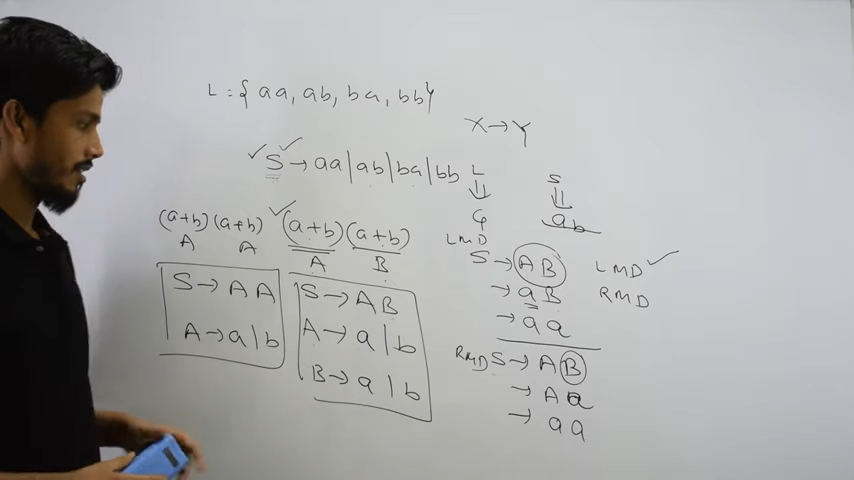 L = { aa, ab, ba, bb }
X → Y
S → aa | ab | ba | bb
L
⇓
G
S
⇓
ab
(a+b) (a+b)
A A
(a+b) (a+b)
A B
S → A A
A → a | b
S → A B
A → a | b
B → a | b
LMD
S → A B
→ a B
→ a a
LMD
RMD
RMD S → A B
→ A a
→ a a